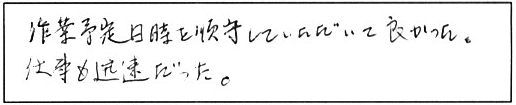 作業予定日時を順守していただいて良かった。
仕事も迅速だった。